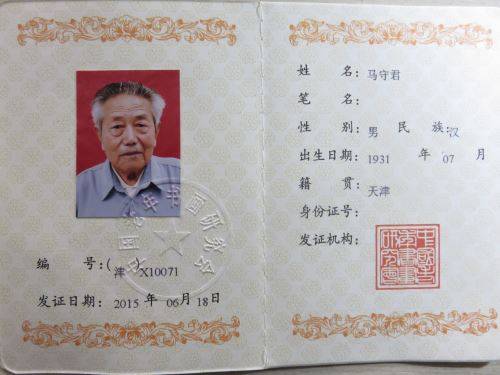 编 号:(津)X10071
发证日期: 2015 年 06 月 18 日
姓 名: 马守君
笔 名:
性 别: 男 民 族: 汉
出生日期: 1931 年 07 月
籍 贯: 天津
身份证号:
发证机构: